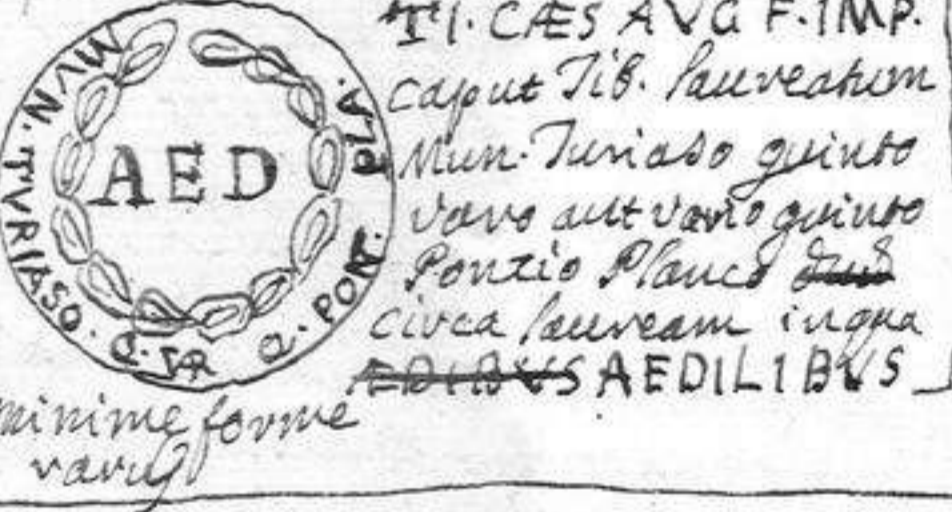 MVN. TVRIASO. Q. VAR Q. PONT. PLA.
AED
TI. CÆS AVG F. IMP.
caput Tib. laureatum
Mun. Turiaso quinto
varo aut vario quinto
Pontio Planco
circa lauream in qua
ÆDIBVS AEDILIBVS
minime forme